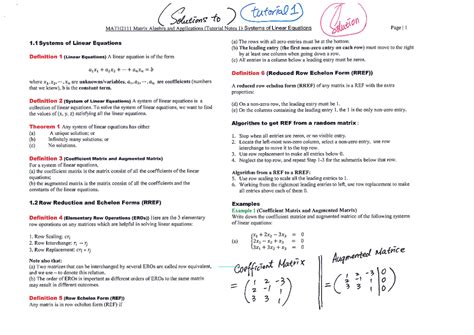 (Solutions to) (tutorial 1) Solution
MA1102111 Matrix Algebra and Applications (Tutorial Notes 1): Systems of Linear Equations Page | 1
1.1 Systems of Linear Equations
Definition 1 (Linear Equation) A linear equation is of the form
a₁x₁ + a₂x₂ + ⋯ + aₙxₙ = b
where x₁, x₂, ⋯, xₙ are unknowns/variables, a₁, a₂, ⋯, aₙ are coefficients (numbers
that we know), b is the constant term.
Definition 2 (System of Linear Equations) A system of linear equations is a
collection of linear equations. To solve the system of linear equations, we want to find
the values of (x, y, z) satisfying all the linear equations.
Theorem 1 Any system of linear equations has either
(a) A unique solution; or
(b) Infinitely many solutions; or
(c) No solutions.
Definition 3 (Coefficient Matrix and Augmented Matrix)
For a system of linear equations,
(a) the coefficient matrix is the matrix consist of all the coefficients of the linear
equations;
(b) the augmented matrix is the matrix consist of all the coefficients and the
constants of the linear equations.
1.2 Row Reduction and Echelon Forms (RREF)
Definition 4 (Elementary Row Operations (EROs)) Here are the 3 elementary
row operations on any matrices which are helpful in solving linear equations:
1. Row Scaling: crᵢ
2. Row Interchange: rᵢ ↔ rⱼ
3. Row Replacement: crᵢ + rⱼ
Note also that:
(a) Two matrices that can be interchanged by several EROs are called row equivalent,
and we use ~ to denote this relation.
(b) The order of EROs is important as different orders of EROs to the same matrix
may result in different outcomes.
Definition 5 (Row Echelon Form (REF))
Any matrix is in row echelon form (REF) if
(a) The rows with all zero entries must be at the bottom.
(b) The leading entry (the first non-zero entry on each row) must move to the right
by at least one column when going down a row.
(c) All entries in a column below a leading entry must be zero.
Definition 6 (Reduced Row Echelon Form (RREF))
A reduced row echelon form (RREF) of any matrix is a REF with the extra
properties:
(d) On a non-zero row, the leading entry must be 1.
(e) On the columns containing the leading entry 1, the 1 is the only non-zero entry.
Algorithm to get REF from a random matrix:
1. Stop when all entries are zeros, or no visible entry.
2. Locate the left-most non-zero column, select a non-zero entry, use row
interchange to move it to the top row.
3. Use row replacement to make all entries below 0.
4. Neglect the top row, and repeat Step 1-3 for the submatrix below that row.
Algorithm from a REF to a RREF:
5. Use row scaling to scale all the leading entries to 1.
6. Working from the rightmost leading entries to left, use row replacement to make
all entries above each of them 0.
Examples
Example 1 (Coefficient Matrix and Augmented Matrix)
Write down the coefficient matrix and augmented matrix of the following systems
of linear equations:
x₁ + 2x₂ − 3x₃ = 0
(a) 2x₁ − x₂ + x₃ = 0
3x₁ + 3x₂ + x₃ = 0
Coefficient Matrix Augmented Matrice
1 2 -3 1 2 -3 | 0
= 2 -1 1 = 2 -1 1 | 0
3 3 1 3 3 1 | 0